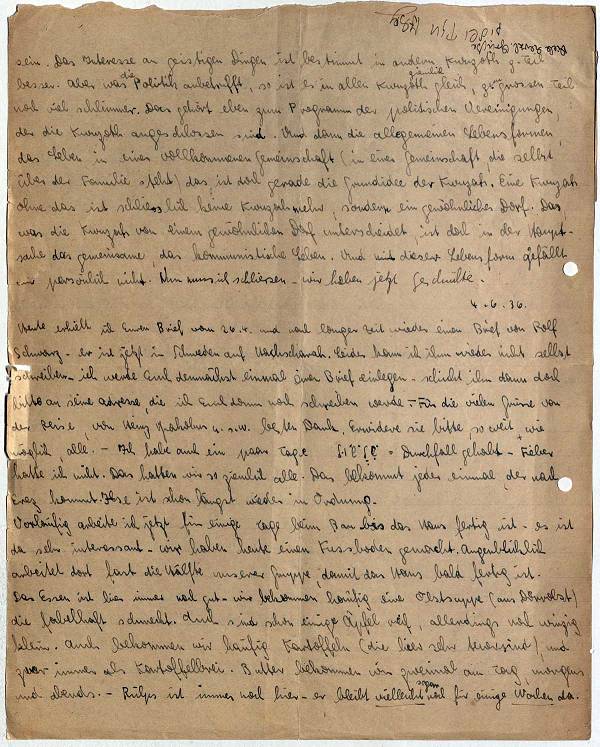 Viele Herzl. Grüsse
sein. Das Interesse an geistigen Dingen ist bestimmt in andern Kwuzoth z. Teil
besser. Aber was die Politik anbetrifft, so ist es in allen Kwuzoth ziemlich gleich, zu grossen Teil
noch viel schlimmer. Das gehört eben zum Programm der politischen Vereinigungen,
der die Kwuzoth angeschlossen sind. Und dann die allgemeinen Lebensformen,
das Leben in einer vollkommenen Gemeinschaft (in einer Gemeinschaft die selbst
über der Familie steht) das ist doch gerade die Grundidee der Kwuzah. Eine Kwuzah
ohne das ist schliesslich keine Kwuzah mehr, sondern ein gewöhnliches Dorf. Das,
was die Kwuzah von einem gewöhnlichen Dorf unterscheidet, ist doch in der Haupt-
sache das gemeinsame das kommunistische Leben. Und mit dieser Lebensform gefällt
persönlich nicht. Nun muss ich schliessen - wir haben jetzt Geschichte.
4.6.36.
Heute erhielt ich Euren Brief vom 26.4. und nach langer Zeit wieder einen Brief von Rolf
Schwarz - er ist jetzt in Schweden auf Hachscharah. Leider kann ich ihm wieder nicht selbst
schreiben - ich werde Euch demnächst einmal einen Brief einlegen - schickt ihn dann doch
bitte an seine Adresse, die ich Euch dann noch schreiben werde. - Für die vielen Grüsse von
der Reise, von Heinz u.s.w. besten Dank. Erwidere sie bitte, so weit wie
möglich alle. - Ich habe auch ein paar Tage שלשול = Durchfall gehabt - Fieber
hatte ich nicht. Das hatten wir so ziemlich alle. Das bekommt jeder einmal, der nach
Erez kommt. Ilse ist schon längst wieder in Ordnung.
Vorläufig arbeite ich jetzt für einige Tage beim Bau bis das Haus fertig ist - es ist
da sehr interessant - wir haben heute einen Fussboden gemacht. Augenblicklich
arbeitet dort fast die Hälfte unserer Gruppe, damit das Haus bald fertig ist.
Das Essen ist hier immer noch gut - wir bekommen häufig eine Obstsuppe (aus Dörrobst)
die fabelhaft schmeckt. Auch sind schon einige Äpfel reif, allerdings noch winzig
klein. Auch bekommen wir häufig Kartoffeln (die hier sehr teuer sind) und
zwar immer als Kartoffelbrei. Butter bekommen wir zweimal am Tag, morgens
und abends. - ist immer noch hier - er bleibt vielleicht noch für einige Wochen da.